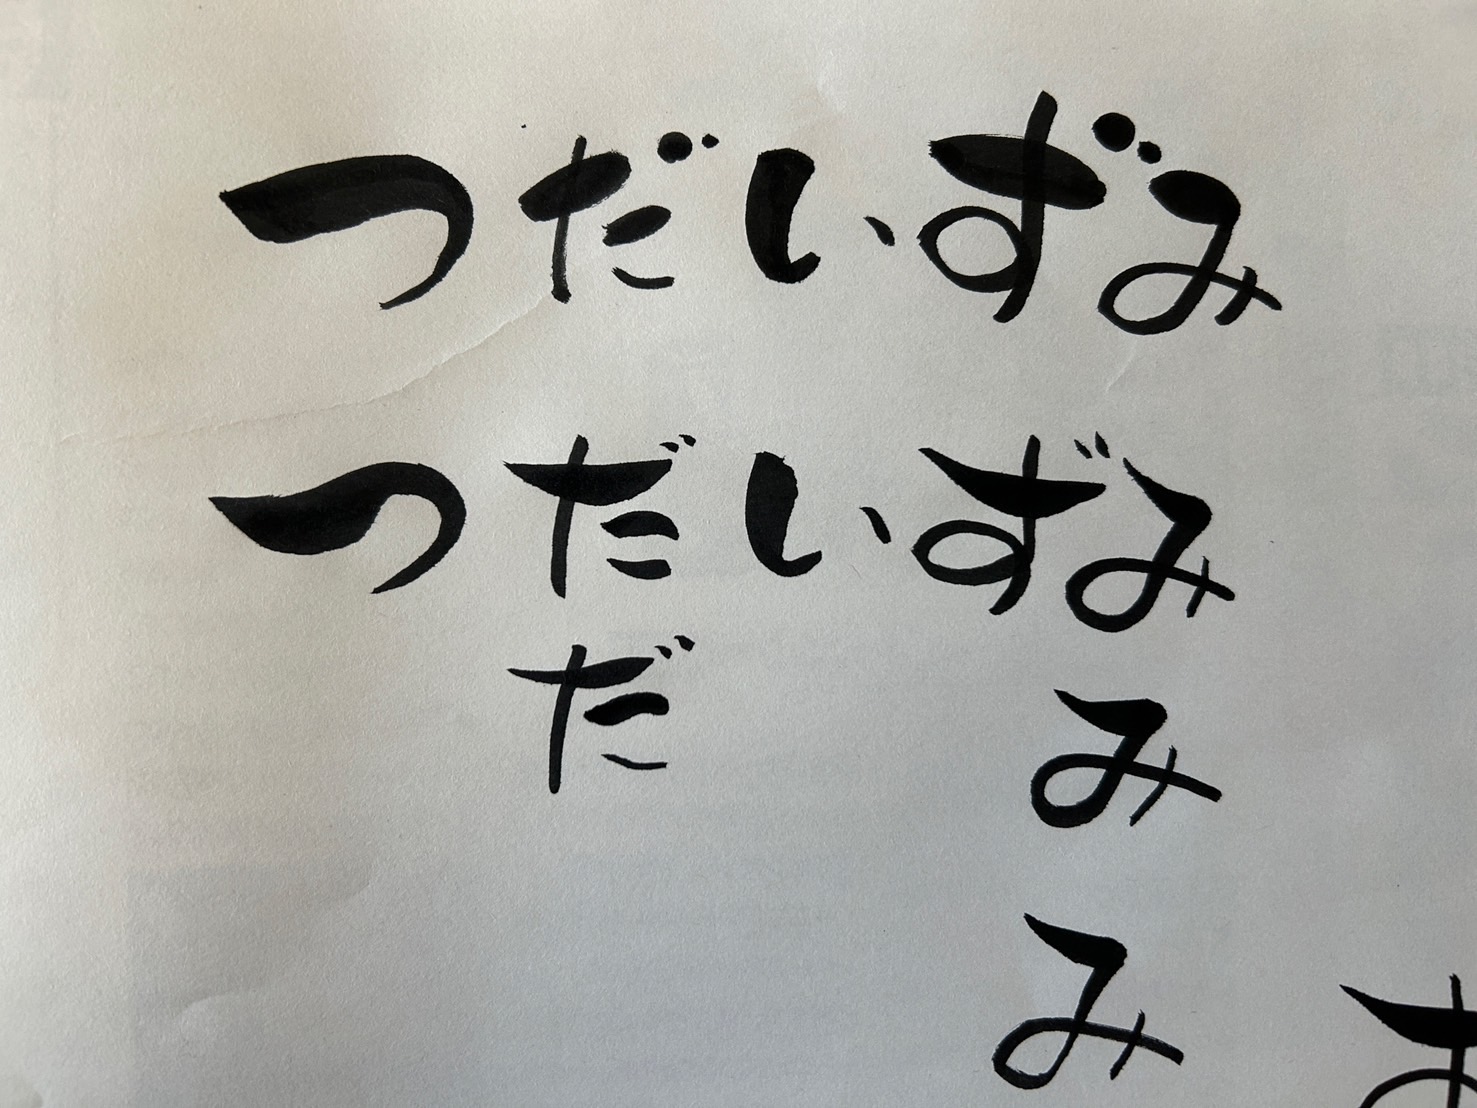 つだいずみ
つだいずみ
だ
み
み